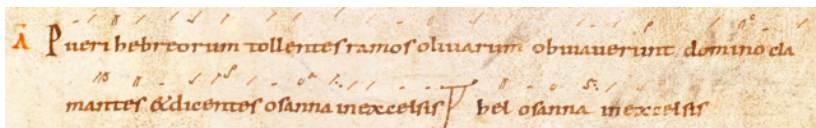 Ā Pueri hebreorum tollentes ramos oliuarum obuiauerunt domino cla
mantes & dicentes osanna in excelsis P bel osanna in excelsis